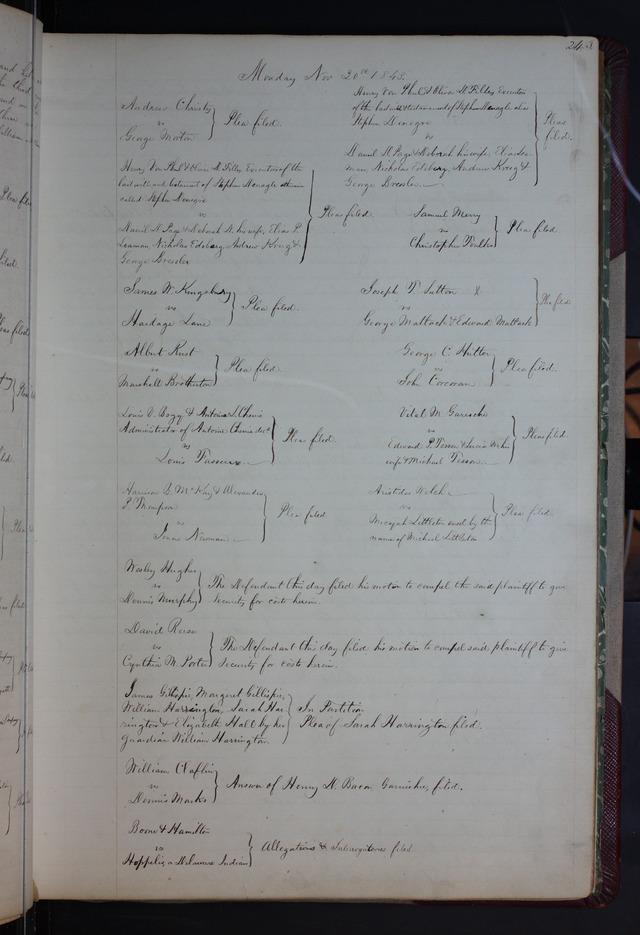 243
Monday Nov 20th 1848.
Andrew Christy
vs
George Morton
Plea filed.
Henry Von Phul & Oliver D. Filley Executors
of the last will & testament of Stephen Menagle alias
Stephen Denegre
vs
Daniel D. Page & Deborah his wife,
Nicholas Edsberg, Andrew Krieg &
George Bressler
Pleas filed.
Henry Von Phul & Oliver D. Filley Executors of the
last will and testament of Stephen Menagle otherwise
called Stephen Denegre
vs
Daniel D. Page & Deborah his wife, Elias P.
Nicholas Edsberg, Andrew Krieg &
George Bressler
Pleas filed.
Samuel Merry
vs
Christopher
Plea filed.
James W. Kingsbury
vs
Hardage Lane
Plea filed.
Joseph T. Sutton
vs
George Mattack & Edward Mattack
Plea filed
Albert Rust
vs
Marshall Brotherton
Plea filed.
George C. Hutton
vs
John Corcoran
Plea filed.
Louis V. Bogy & Antoine L. Chenie
Administrator of Antoine Chenie decd
vs
Louis
Plea filed.
Vital M. Garesche
vs
Edward P. Tesson & his
wife & Michael Tesson
Pleas filed.
Harrison G. McKay & Alexander
P. Thompson
vs
Isaac Newman
Plea filed
Aristides Welch
vs
Micajah Littleton sued by the
name of Michael Littleton
Plea filed.
Wesley Hughes
vs
Dennis Murphy
The Defendant this day filed his motion to compel the said plaintiff to give
security for costs herein.
David Reese
vs
Cynthia M. Porter
The Defendant this day filed his motion to compel said plaintiff to give
security for costs herein.
James Gillispie, Margaret Gillispie,
William Harrington, Sarah Har
rington & Elizabeth Hall by her
guardian William Harrington.
In Partition
Plea of Sarah Harrington filed.
William Claflin
vs
Dennis Marks
Answer of Henry D. Bacon Garnishee, filed.
Boone & Hamilton
vs
a Delaware Indian
Allegations & Interrogatories filed